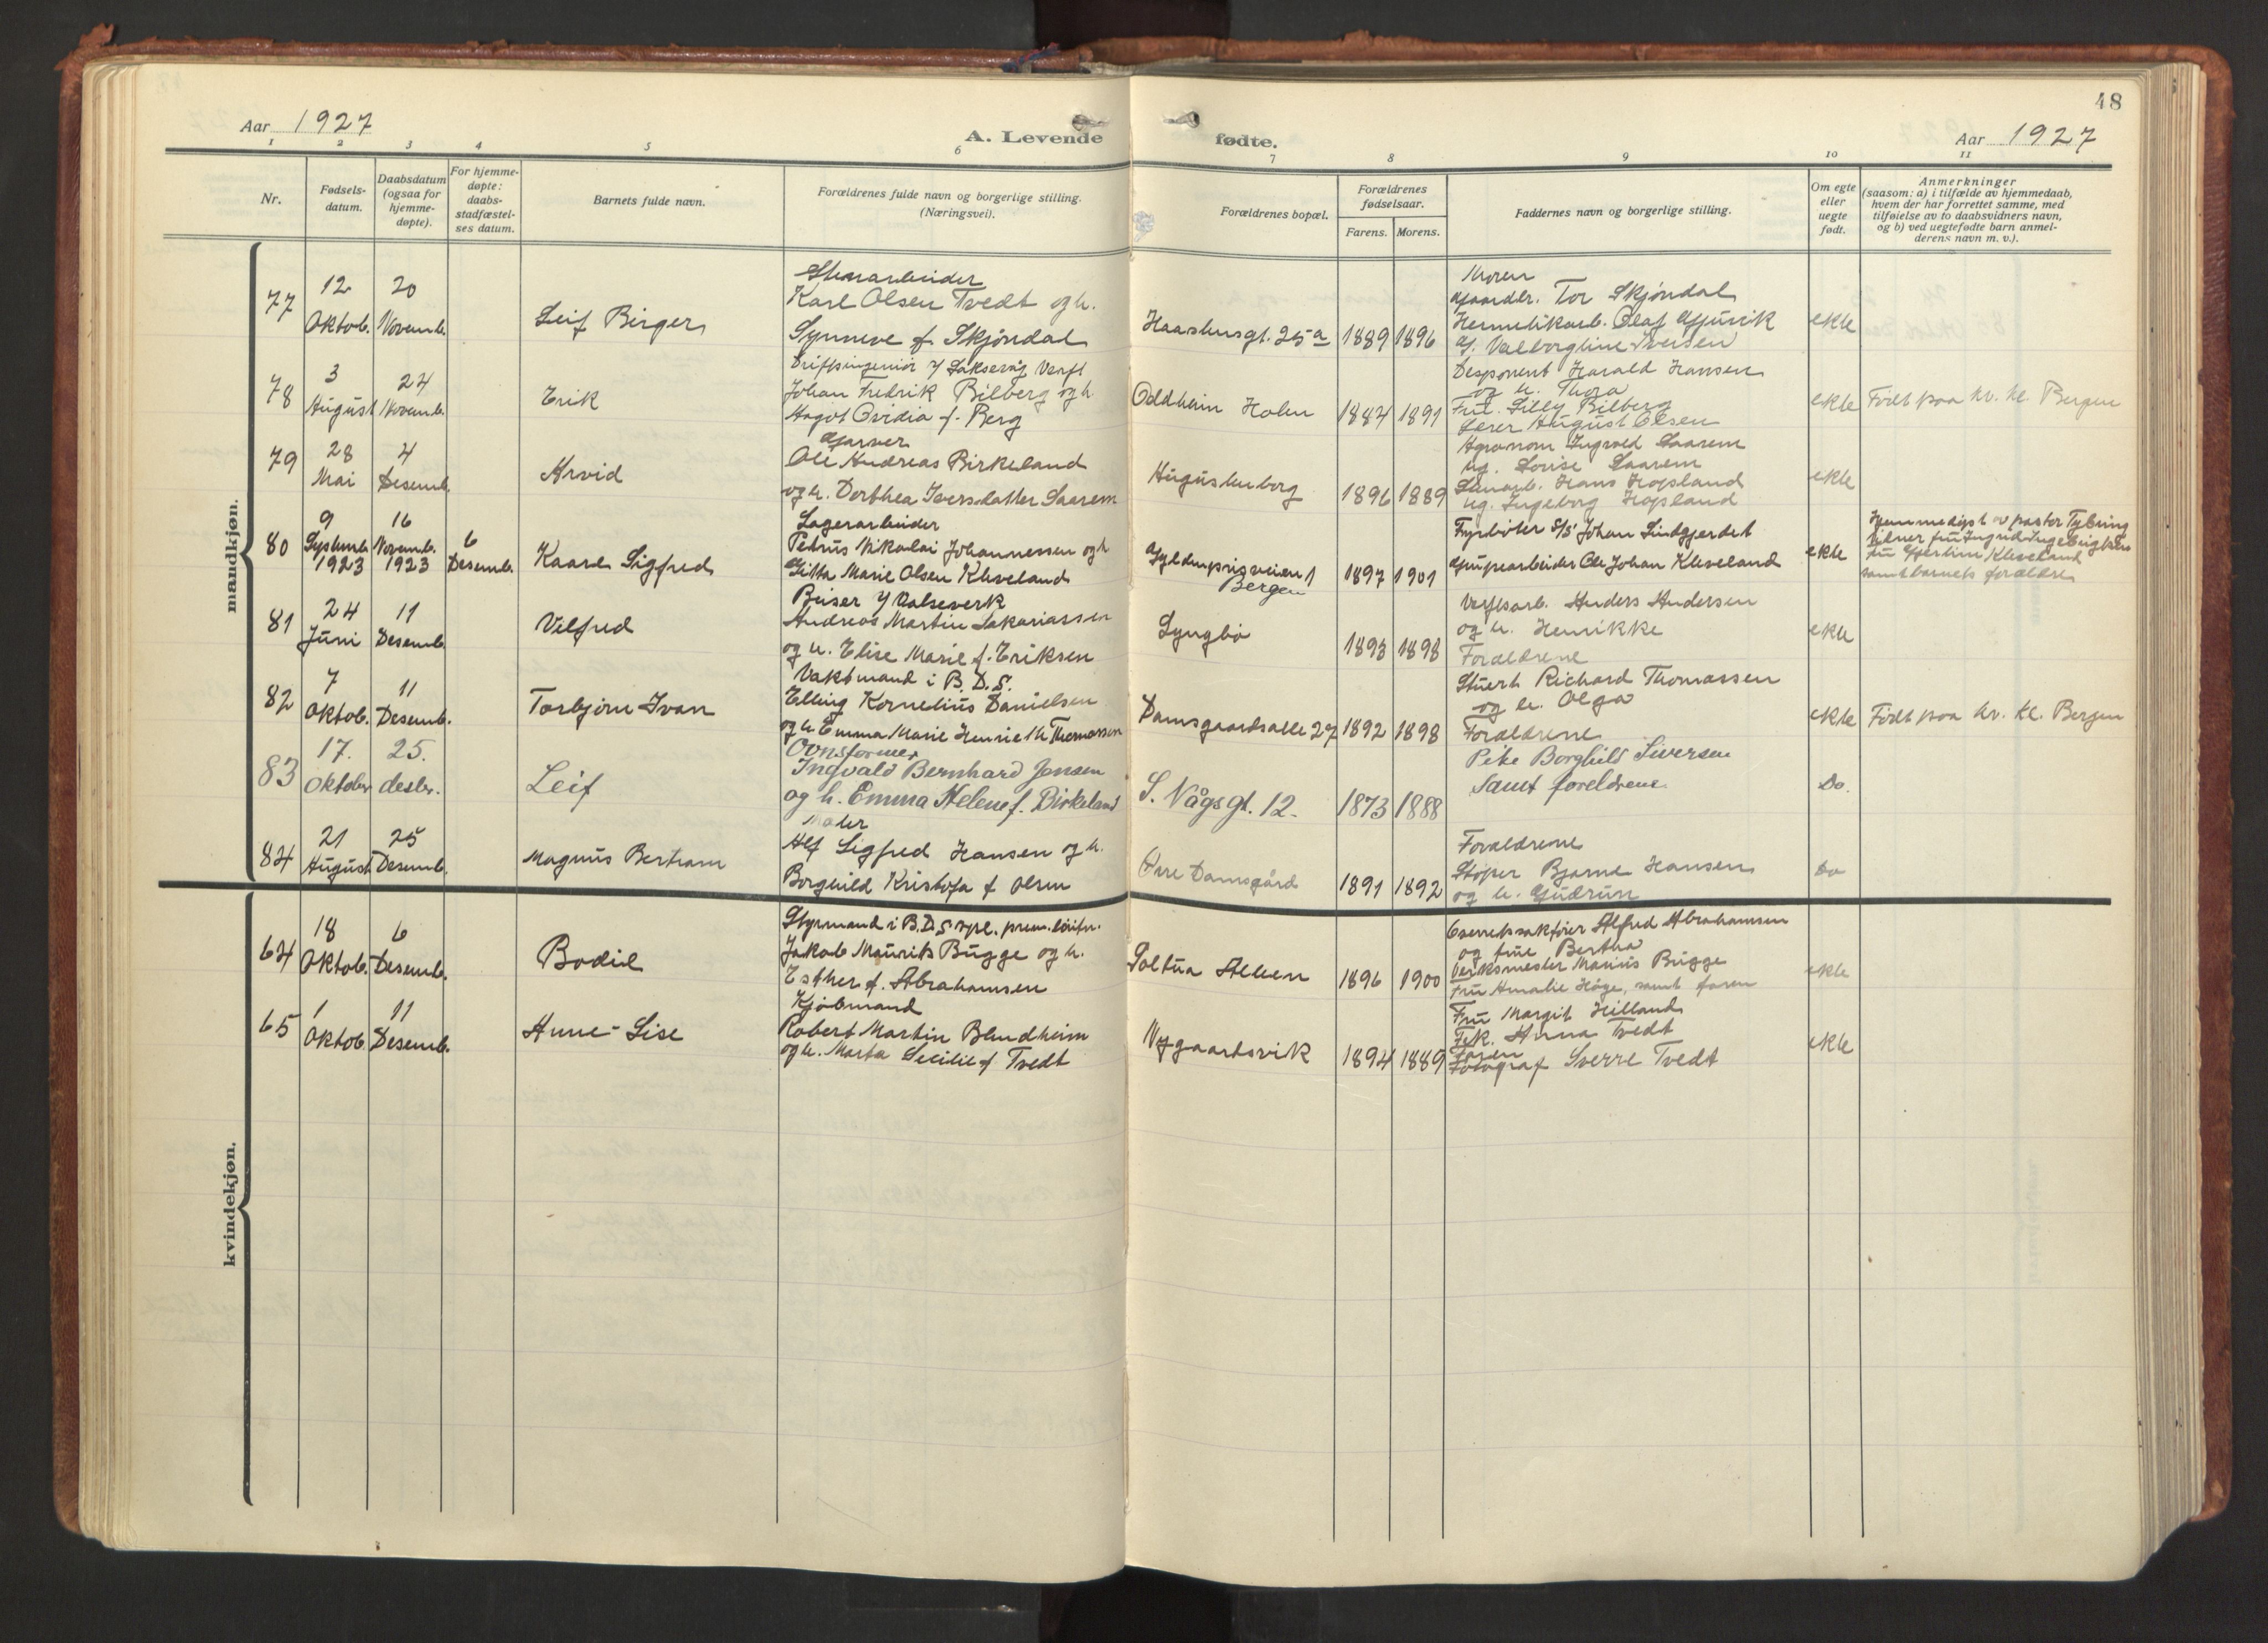 48
Aar 1927
A. Levende fødte.
Aar 1927
1 2 3 4 5 6 7 8 9 10 11
Nr.
Fødsels-
datum.
Daabsdatum
(ogsaa for
hjemme-
døpte).
For hjemme-
døpte:
daabs-
stadfæstel-
ses datum.
Barnets fulde navn.
Forældrenes fulde navn og borgerlige stilling.
(Næringsvei).
Forældrenes bopæl.
Forældrenes
fødselsaar.
Farens. Morens.
Faddernes navn og borgerlige stilling.
Om egte
eller
uegte
født.
Anmerkninger
(saasom: a) i tilfælde av hjemmedaab,
hvem der har forrettet samme, med
tilføielse av to daabsvidners navn,
og b) ved uegtefødte barn anmel-
derens navn m. v.).
mandkjøn.
77
12
Oktob.
20
Novemb.
Leif Birger
Stenarbeider
Karl Olsen Tvedt og h.
Synneve f. Skjøndal
Haashusgt. 25a
1889 1896
Moren
Gaardbr. Tor Skjøndal
Hermetikarb. Olaf Gjuvik
Valborgline Iversen
ekte
78
3
August
24
Novemb.
Erik
Driftsingeniør v/ Laksevåg Verft
Johan Fredrik Bilberg og h.
Hagot Ovidia f. Berg
Oddheim Holen
1884 1891
Disponent Harald Hansen
og h. Thora
Frk. Lilly Bilberg
Lærer August Olsen
ekte
Født paa kv. kl. Bergen
79
28
Mai
4
Desemb.
Arvid
Garver
Ole Andreas Birkeland
og h. Dorthea Iversdatter Saarem
Augustenborg
1896 1889
Agronom Ingvald Saarem
ug. Lovise Saarem
Hans Hopland
ug. Ingeborg Hopland
ekte
80
9
Septemb.
1923
16
Novemb.
1923
6
Desemb.
Kaare Sigfred
Lagerarbeider
Petrus Nikolai Johannessen og h
Gitta Marie Olsen Kleveland
Gyldenprisveien 1
Bergen
1897 1901
Fyrbøter S/S Johan Lindgjerdet
Ole Johan Kleveland
ekte
Hjemmedøpt av pastor Tybring
fru Kleveland
samt barnets forældre
81
24
Juni
11
Desemb.
Velfred
Beiser v/ Valseverk
Andreas Martin Sakariassen
og h. Elise Marie f. Eriksen
Lyngbø
1893 1898
Verftsarb. Anders Andersen
og h. Henrikke
Forældrene
ekte
82
7
Oktob.
11
Desemb.
Torbjørn Ivan
Vaktmand i B.D.S.
Elling Kornelius Danielsen
og h. Emma Marie Henriette Thomassen
Damsgaardsalle 27
1892 1898
Stuert Richard Thomassen
og h. Olga
Forældrene
ekte
Født paa kv. kl. Bergen
83
17.
Oktober
25.
desbr.
Leif
Ovnsformer
Ingvald Bernhard Jensen
og h. Emma Helene f. Birkeland
S. Vågsgt. 12.
1873 1888
Pike Borghild Siversen
samt foreldrene
Do.
84
21
August
25
Desemb.
Magnus Bertram
Maler
Alf Sigfred Hansen og h.
Borghild Kristofa f Olsen
Øvre Damsgård
1891 1892
Forældrene
Støper Bjarne Hansen
og h. Gudrun
Do
kvindekjøn.
64
18
Oktob.
6
Desemb.
Bodil
Styrmand i B.D.S
Jakob Mauritz Bugge og h.
Esther f. Abrahamsen
Soltua Alleen
1896 1900
Alfred Abrahamsen
og frue Bertha
Verksmester Marius Bugge
Fru Amalie Høge, samt faren
ekte
65
1
Oktob.
11
Desemb.
Anne-Lise
Kjøbmand
Robert Martin Blendheim
og h. Marta Secilie f Tvedt
Nygaardsvik
1894 1889
Fru Margit Hilland
Frk. Anna Tvedt
Faren
Fotograf Sverre Tvedt
ekte